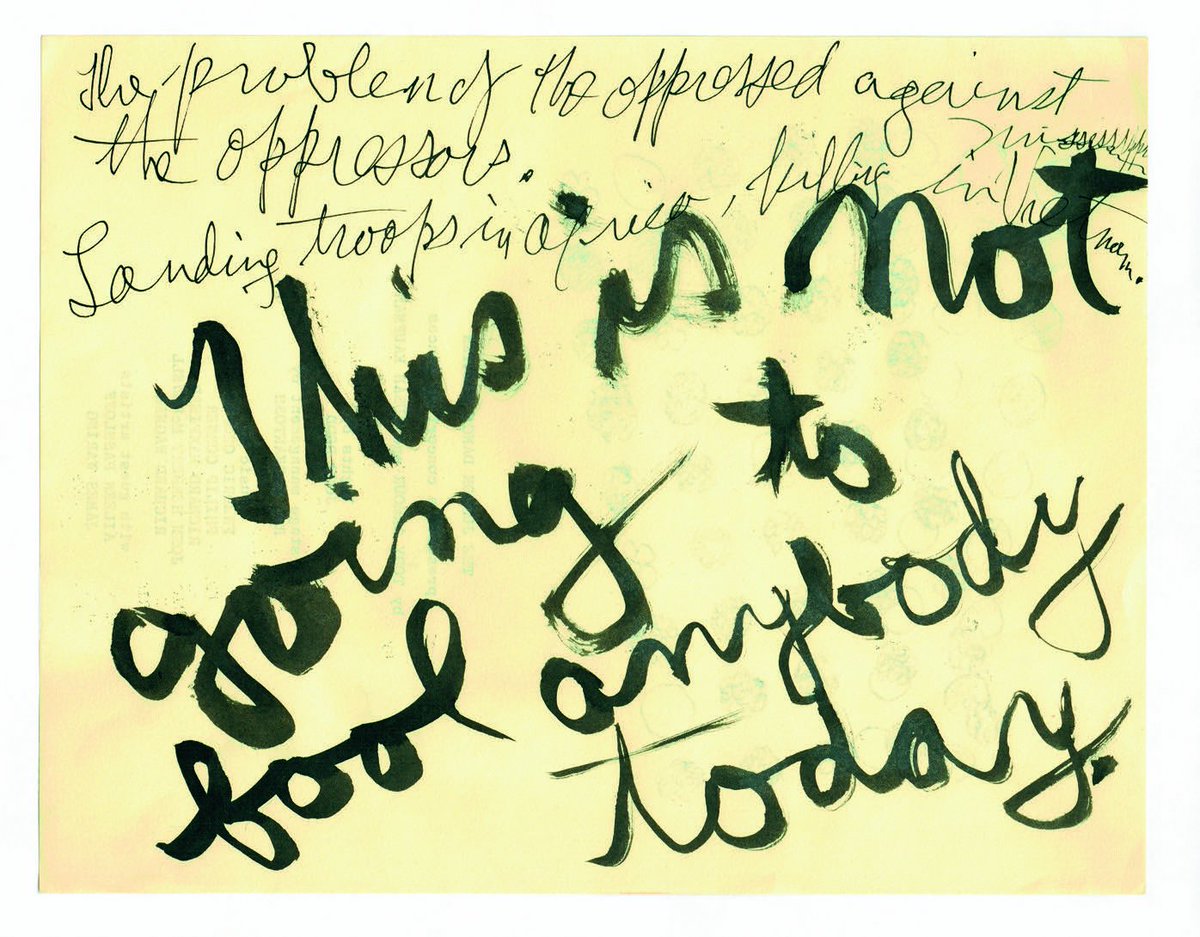 The problem of the oppressed against
the oppressors.
Landing troops in africa, killing in Viet nam.
This is not
going to
fool anybody
today.